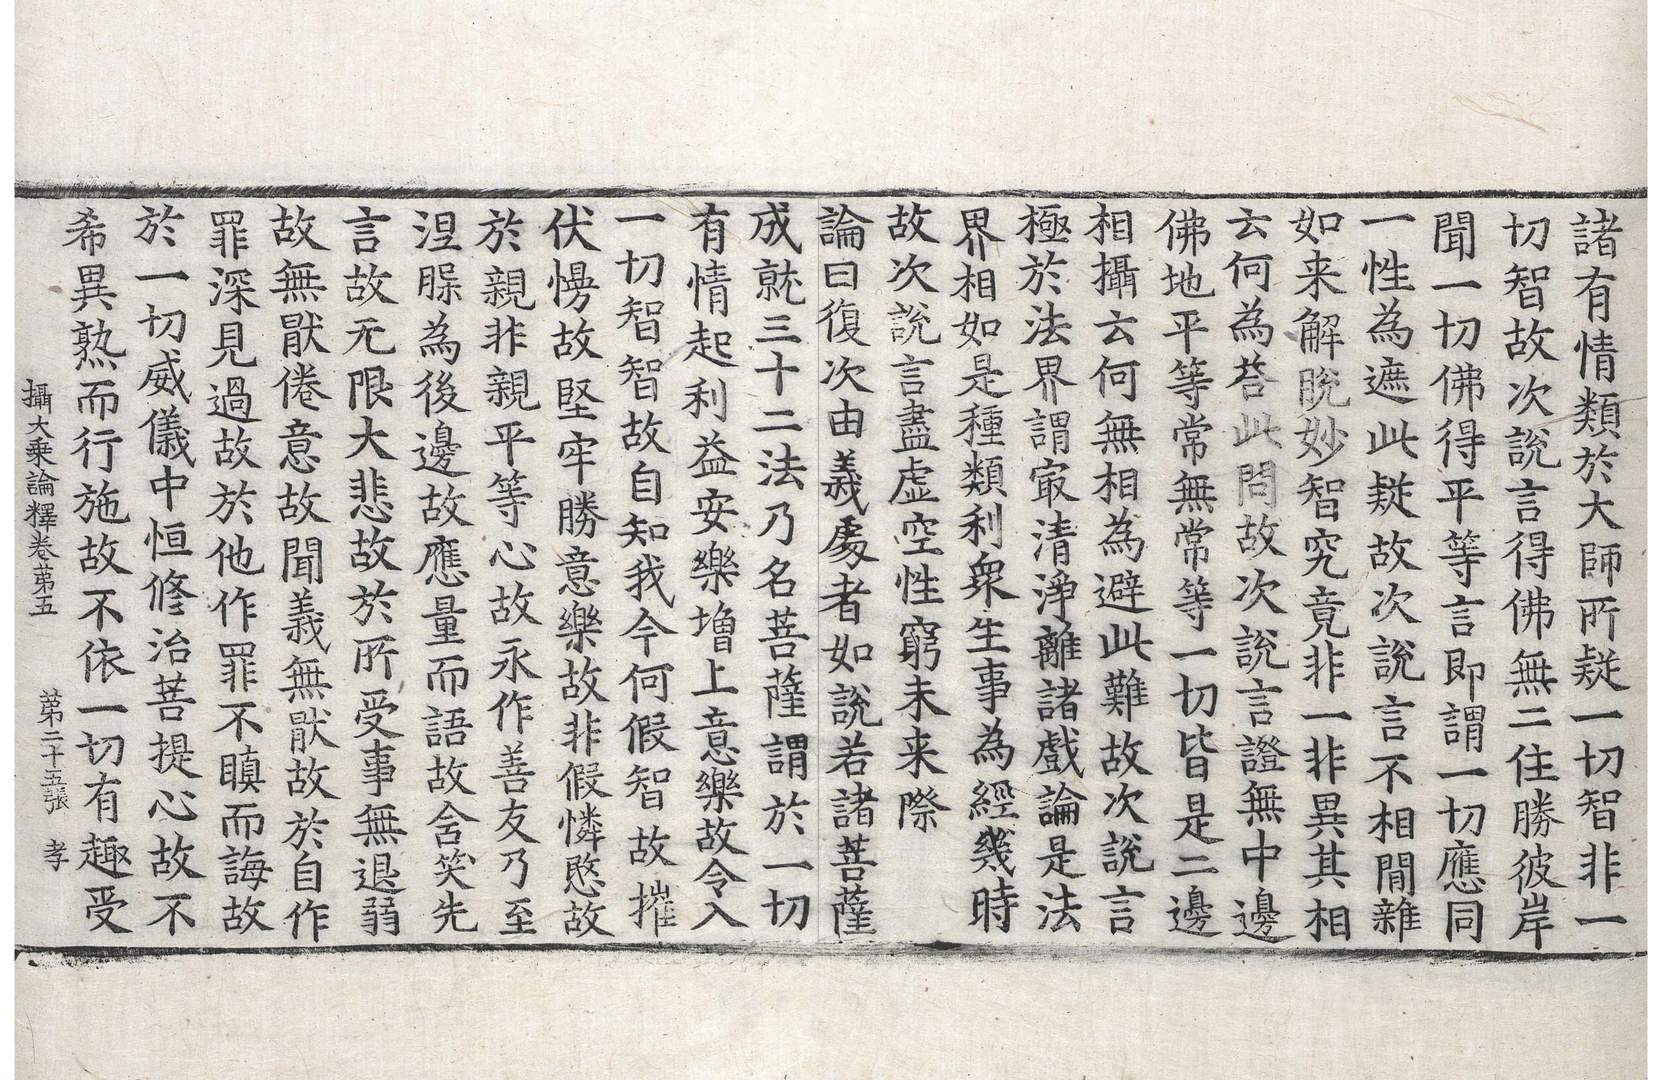 諸有情類於大師所疑一切智非一
切智故次說言得佛無二住勝彼岸
聞一切佛得平等言即謂一切應同
一性為遮此疑故次說言不相間雜
如来解脫妙智究竟非一非異其相
云何為荅此問故次說言證無中邊
佛地平等常無常等一切皆是二邊
相攝云何無相為避此難故次說言
極於法界謂㝡清淨離諸戲論是法
界相如是種類利衆生事為經幾時
故次說言盡虛空性窮未来際
論曰復次由義處者如說若諸菩薩
成就三十二法乃名菩薩謂於一切
有情起利益安樂增上意樂故令入
一切智智故自知我今何假智故摧
伏慢故堅牢勝意樂故非假憐愍故
於親非親平等心故永作善友乃至
涅槃為後邊故應量而語故含笑先
言故无限大悲故於所受事無退弱
故無猒倦意故聞義無猒故於自作
罪深見過故於他作罪不瞋而誨故
於一切威儀中恒修治菩提心故不
希異熟而行施故不依一切有趣受
攝大乗論釋卷第五 第二十五張 孝